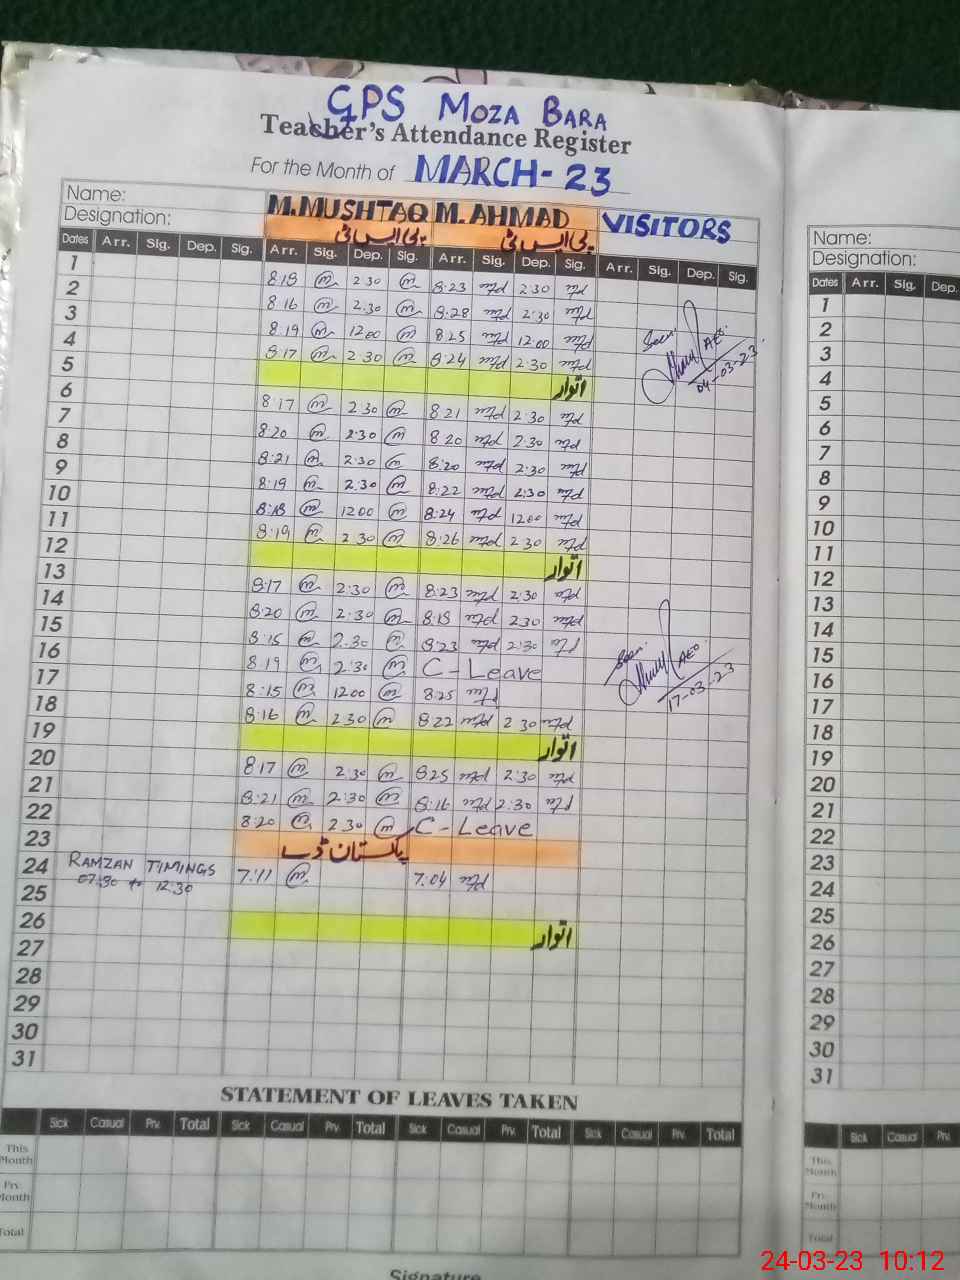 GPS MOZA BARA
Teacher's Attendance Register
For the Month of MARCH-23
Name: M.MUSHTAQ M. AHMAD VISITORS
Designation: پی ایس ٹی پی ایس ٹی
Dates Arr. Sig. Dep. Sig. Arr. Sig. Dep. Sig. Arr. Sig. Dep. Sig. Arr. Sig. Dep. Sig.
1 8:19 2 30 8:23 2:30
2 8:16 2:30 8:28 2:30
3 8:19 1200 8:25 12:00 Seen
4 8:17 2:30 8:24 2:30 AEO. 04-03-23
5 اتوار
6 8:17 2:30 8:21 2:30
7 8:20 2:30 8 20 2:30
8 8:21 2:30 8:20 2:30
9 8:19 2:30 8:22 2:30
10 8:18 1200 8:24 1200
11 8:19 2:30 8:26 2:30
12 اتوار
13 8:17 2:30 8:23 2:30
14 8:20 2:30 8:18 2:30
15 8:15 2:30 8:23 2:30
16 8:19 2:30 C-Leave Seen AEO.
17 8:15 1200 8:25 17-03-23
18 8:16 2 30 8:22 2 30
19 اتوار
20 8:17 2:30 8:25 2:30
21 8:21 2:30 8:16 2:30
22 8:20 2:30 C-Leave
23 پاکستان ڈے
24 RAMZAN TIMINGS 7:11 7:04
07:30 to 12:30
25
26 اتوار
27
28
29
30
31
STATEMENT OF LEAVES TAKEN
Sick Casual Prv. Total Sick Casual Prv. Total Sick Casual Prv. Total Sick Casual Prv. Total
This Month
Prv. Month
Total
Signature
Name:
Designation:
Dates Arr. Sig. Dep.
1
2
3
4
5
6
7
8
9
10
11
12
13
14
15
16
17
18
19
20
21
22
23
24
25
26
27
28
29
30
31
Sick Casual Prv.
This Month
Prv. Month
Total
24-03-23 10:12